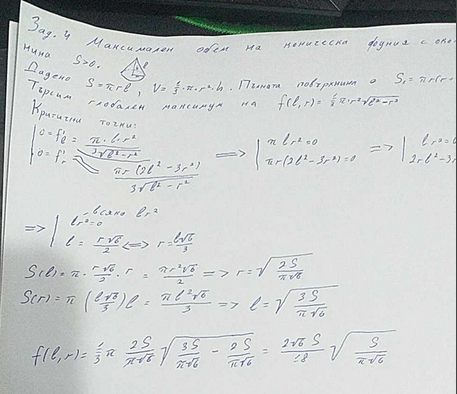 Зад. 4 Максимален обем на коническа фуния с око
нина S>0.
Дадено S=πrl, V=⅓·π·r²·h. Пълната повърхнина е S₁=πr(r
Търсим глобален максимум на f(l,r)=⅓π·r²√(l²-r²)
Критични точки:
| 0=f'ₗ = π·l·r² / 3√(l²-r²) => | πlr²=0 => | lr²=0
| 0=f'ᵣ = πr(2l²-3r²) / 3√(l²-r²) | πr(2l²-3r²)=0 | 2rl²-3
=> | lr²=0 - всяко lr²
| l = r√6/2 <=> r = l√6/3
S(l)=π·r√6/2·r = πr²√6/2 => r=√(2S/π√6)
S(r)=π(l√6/3)l = πl²√6/3 => l=√(3S/π√6)
f(l,r)=⅓π 2S/π√6 √(3S/π√6 - 2S/π√6) = 2√6 S/18 √(S/π√6)